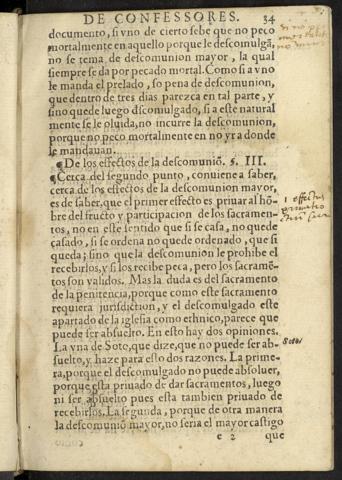 DE CONFESSORES. 34
documento, si vno de cierto sebe que no peco
mortalmente en aquello porque le descomulgã,
no se tema de descomunion mayor, la qual
siempre se da por pecado mortal. Como si a vno
le manda el prelado, so pena de descomunion,
que dentro de tres dias parezca en tal parte, y
sino que de luego dscomulgado, si a este natural
mente se le oluida, no incurre la descomunion,
porque no peco mortalmente en no yr a donde
le mandauan.
¶De los effectos de la descomuniõ. §. III.
¶Cerca del segundo punto, conuiene a saber,
cerca de los effectos de la descomunion mayor,
es de saber, que el primer effecto es priuar al hõ-
bre del fructo y participacion de los sacramen-
tos, no en este sentido que si se casa, no quede
casado, si se ordena no quede ordenado, que si
queda; sino que la descomunion le prohibe el
recebirlos, y si los recibe peca, pero los sacramẽ-
tos son validos. Mas la duda es del sacramento
de la penitencia, porque como este sacramento
requiera jurisdiction, y el descomulgado este
apartado de la iglesia como ethnico, parece que
puede ser absuelto. En esto hay dos opiniones.
La vna de Soto, que dize, que no puede ser ab-
suelto, y haze para esto dos razones. La prime-
ra, porque el descomulgado no puede absoluer,
porque esta priuado de dar sacramentos, luego
ni ser absuelto pues esta tambien priuado de
recebirlos. La segunda, porque de otra manera
la descomuniõ mayor, no seria el mayor castigo
e 2 que
1 effectus
Soto